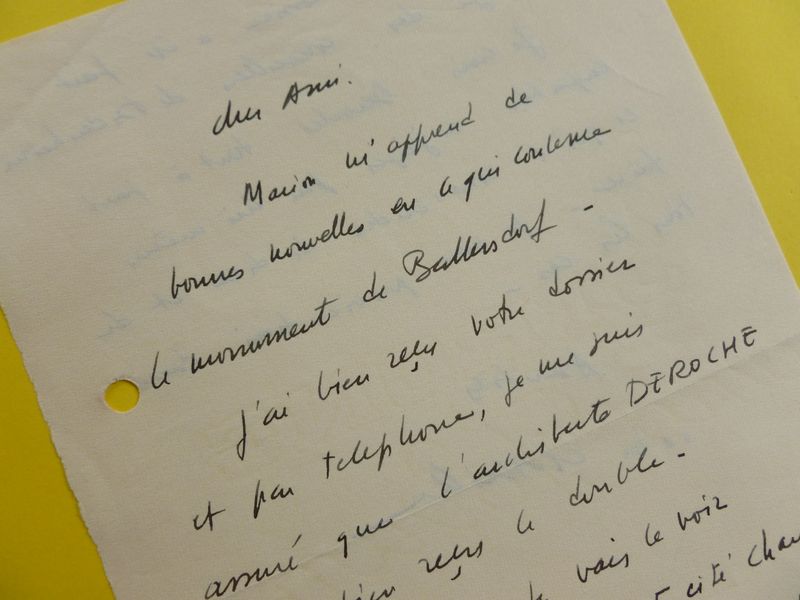 cher Ami.
Marion m'apprend de
bonnes nouvelles en ce qui concerne
le monument de Ballersdorf -
j'ai bien reçu votre dossier
et par telephone, je me suis
assuré que l'architecte DEROCHE
bien reçu le double -
vais le voir
cité